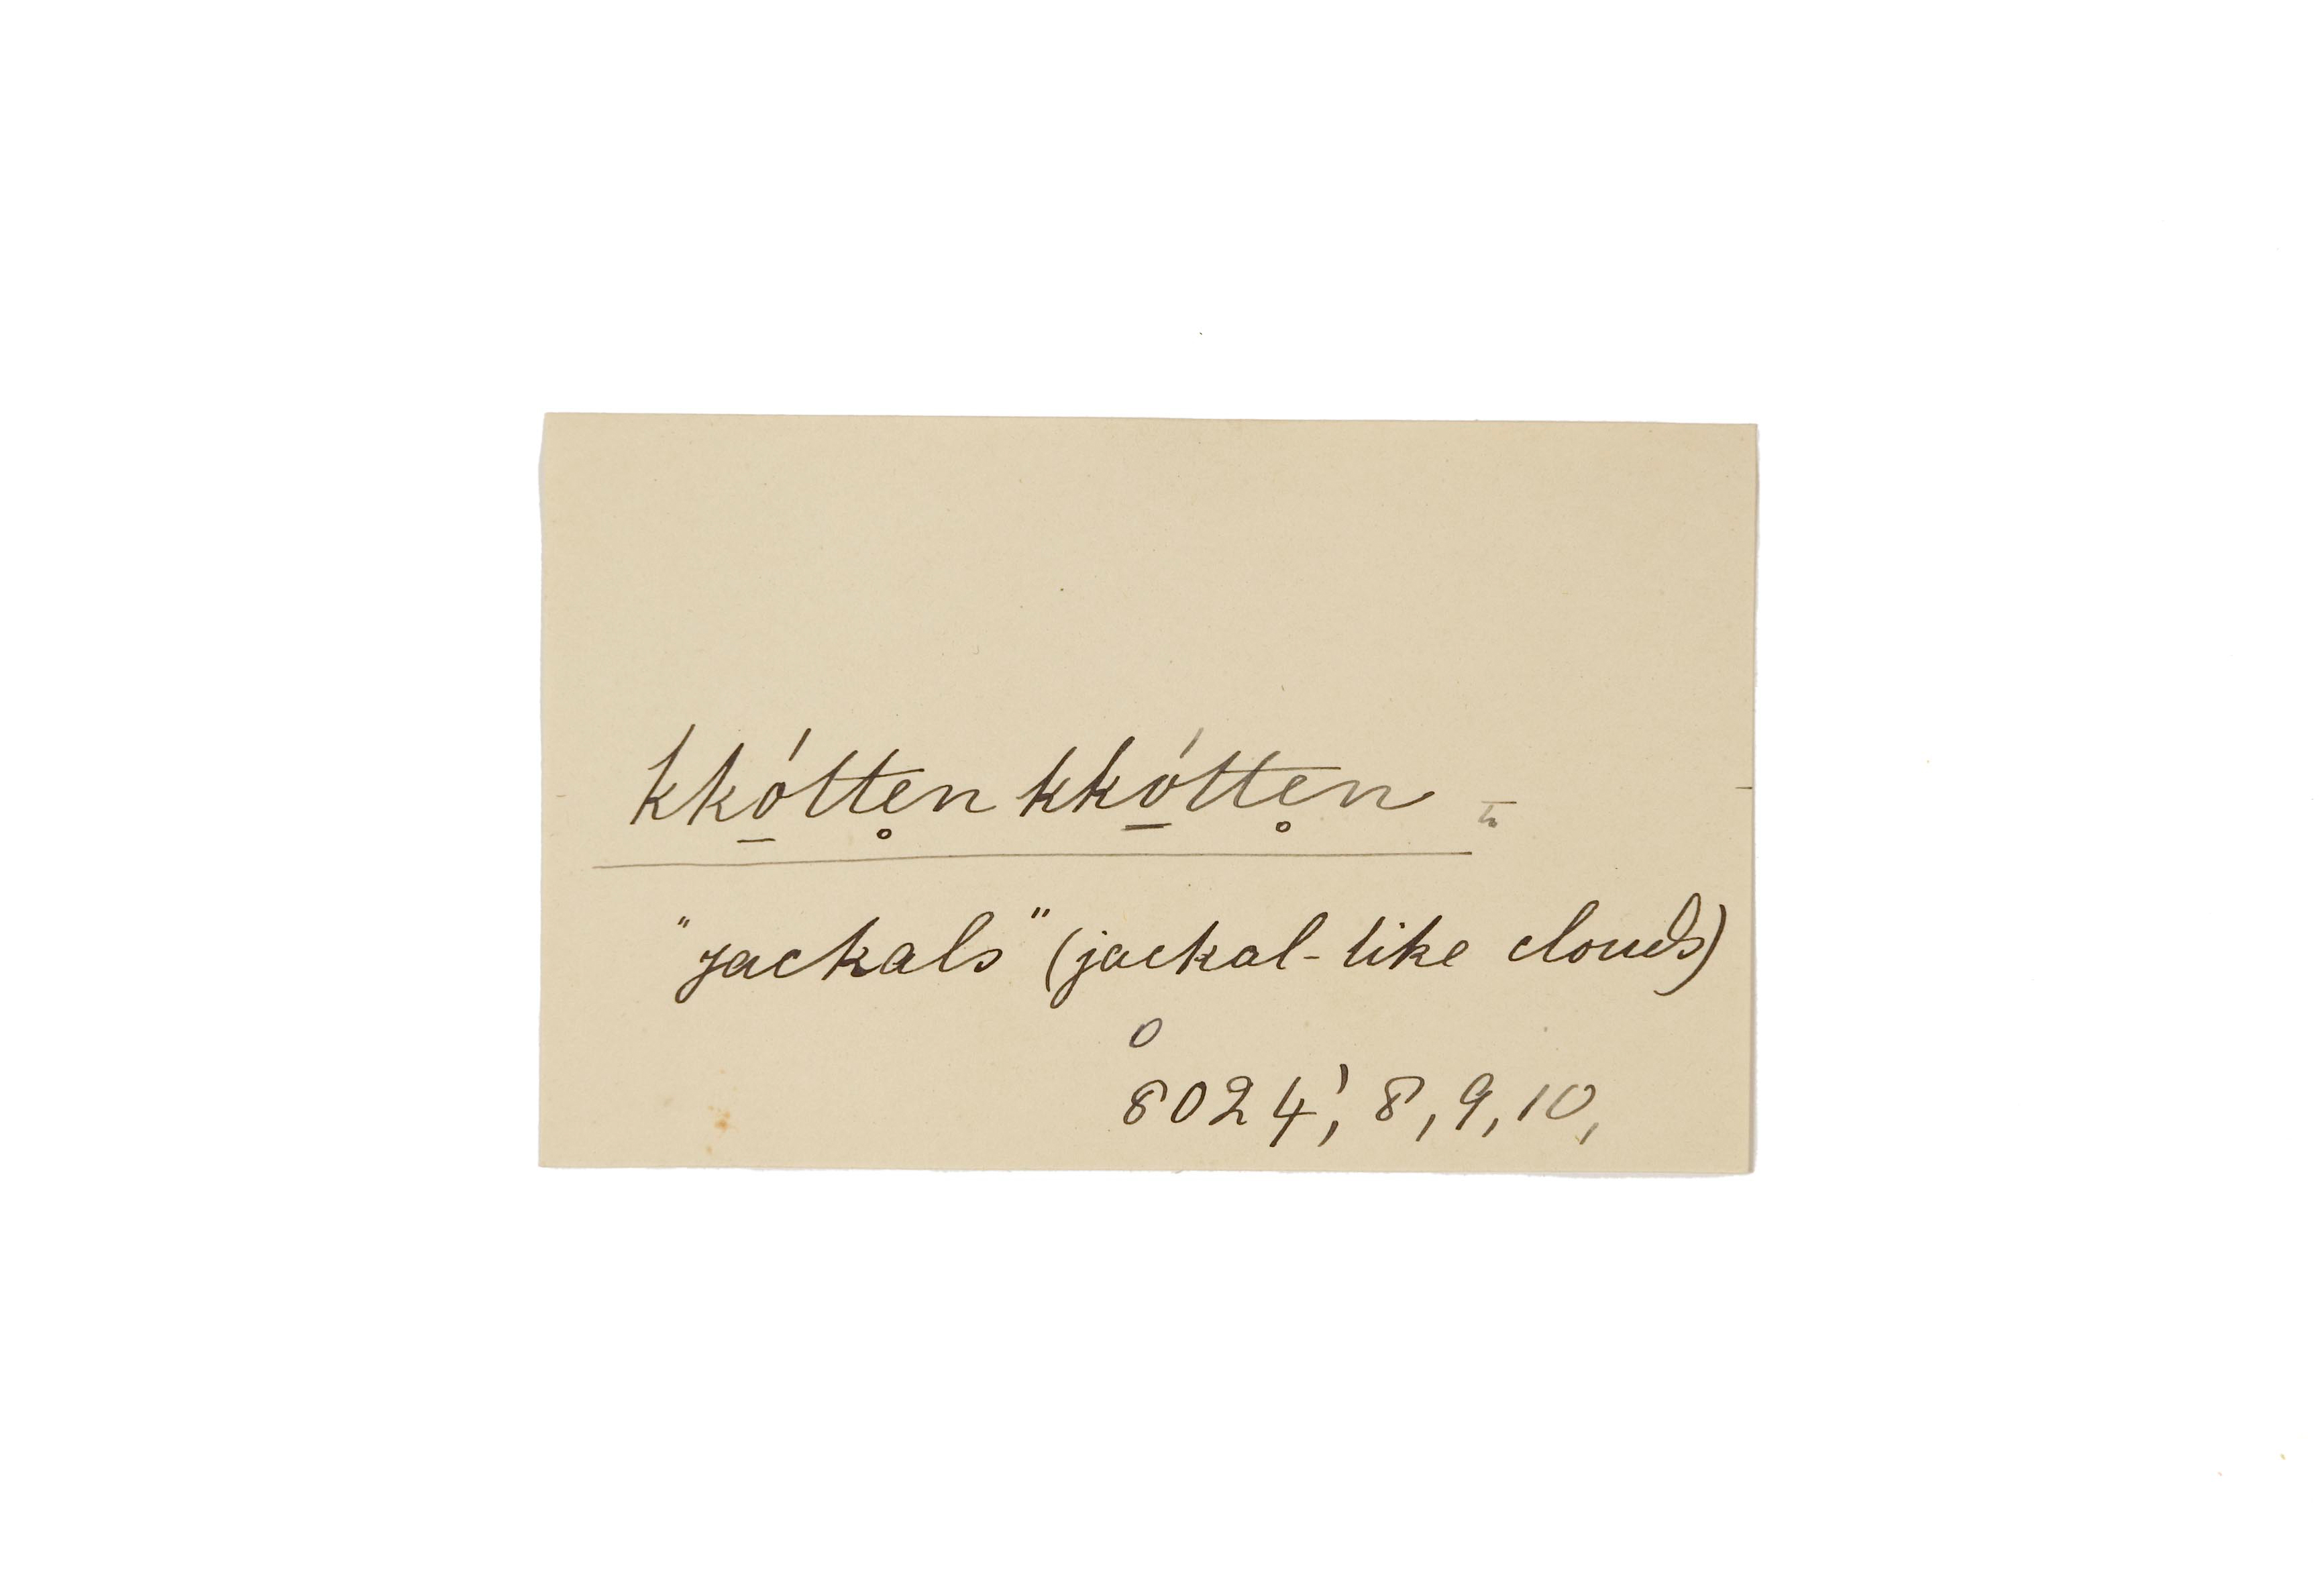 kkó̱tte̥n kkó̱tte̥n
"jackals" (jackal-like clouds)
0
8024', 8, 9, 10,